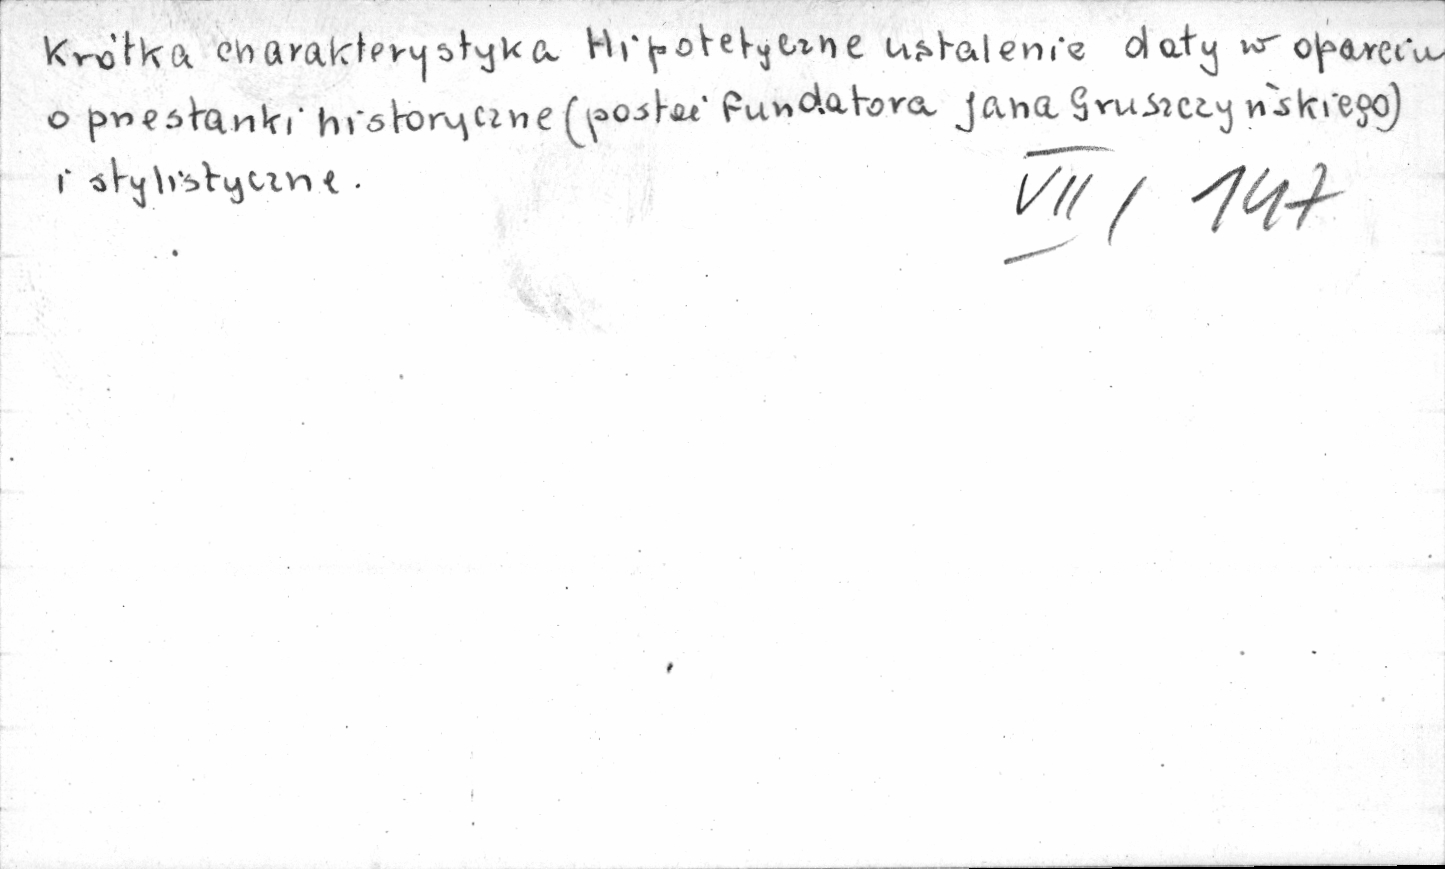 Krótka charakterystyka Hipotetyczne ustalenie daty w oparciu
o przesłanki historyczne (postać fundatora Jana Gruszczyńskiego)
i stylistyczne.
VII / 147